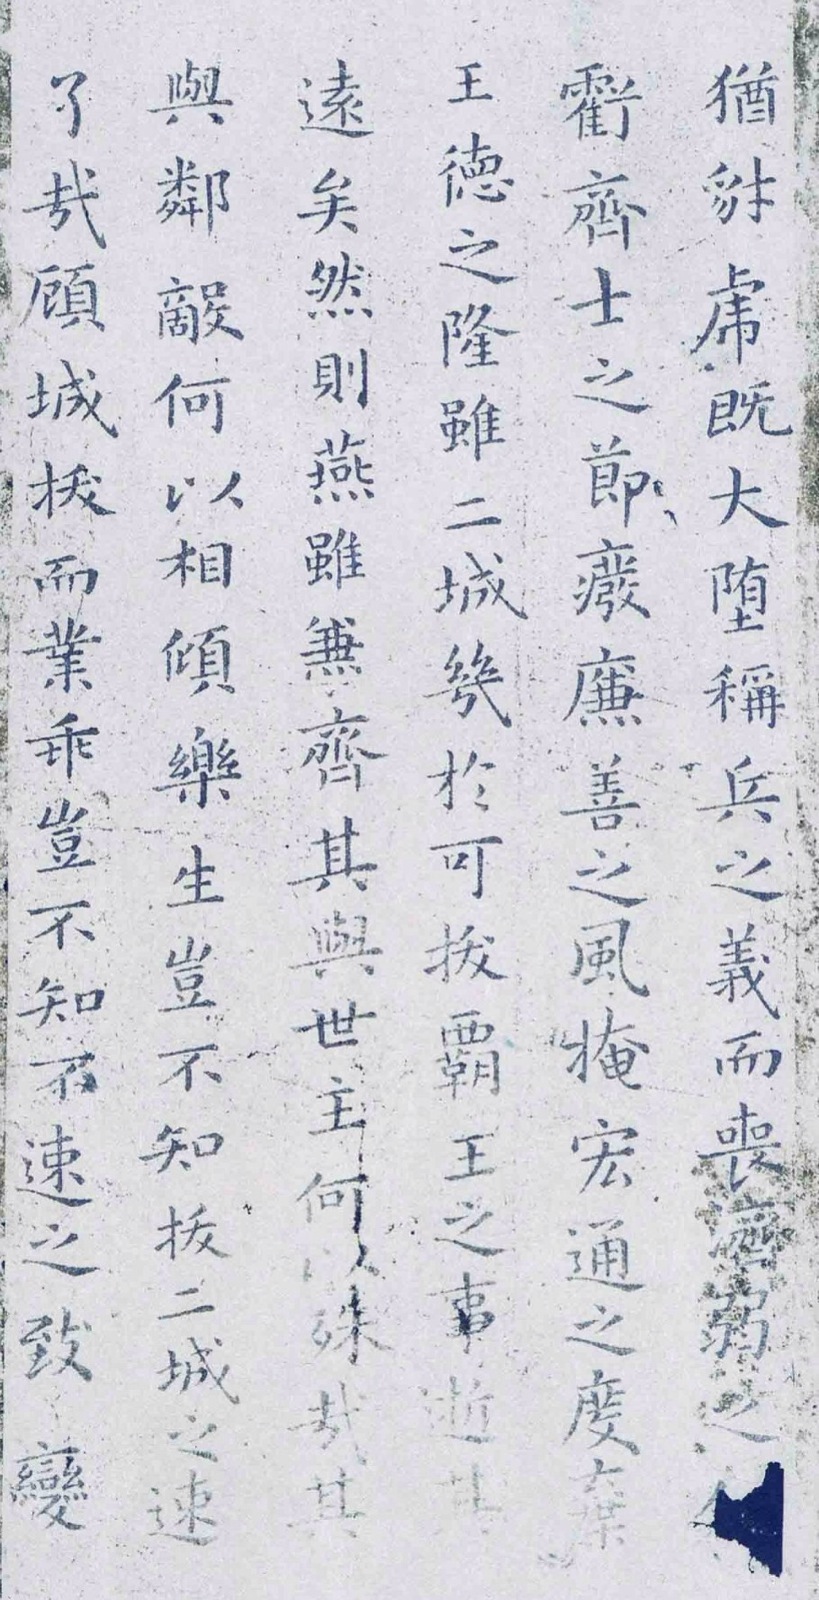 猶豺虎既大堕稱兵之義而喪濟弱之
虧齊士之節廢廉善之風掩宏通之度棄
王德之隆雖二城幾於可拔霸王之事逝其
遠矣然則燕雖兼齊其與世主何以殊哉其
與鄰敵何以相傾樂生豈不知拔二城之速
了哉顧城拔而業乖豈不知不速之致變